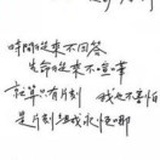 時間從來不回答
生命從來不喧嘩
就算只有片刻 我也不害怕
是片刻組成永恆哪